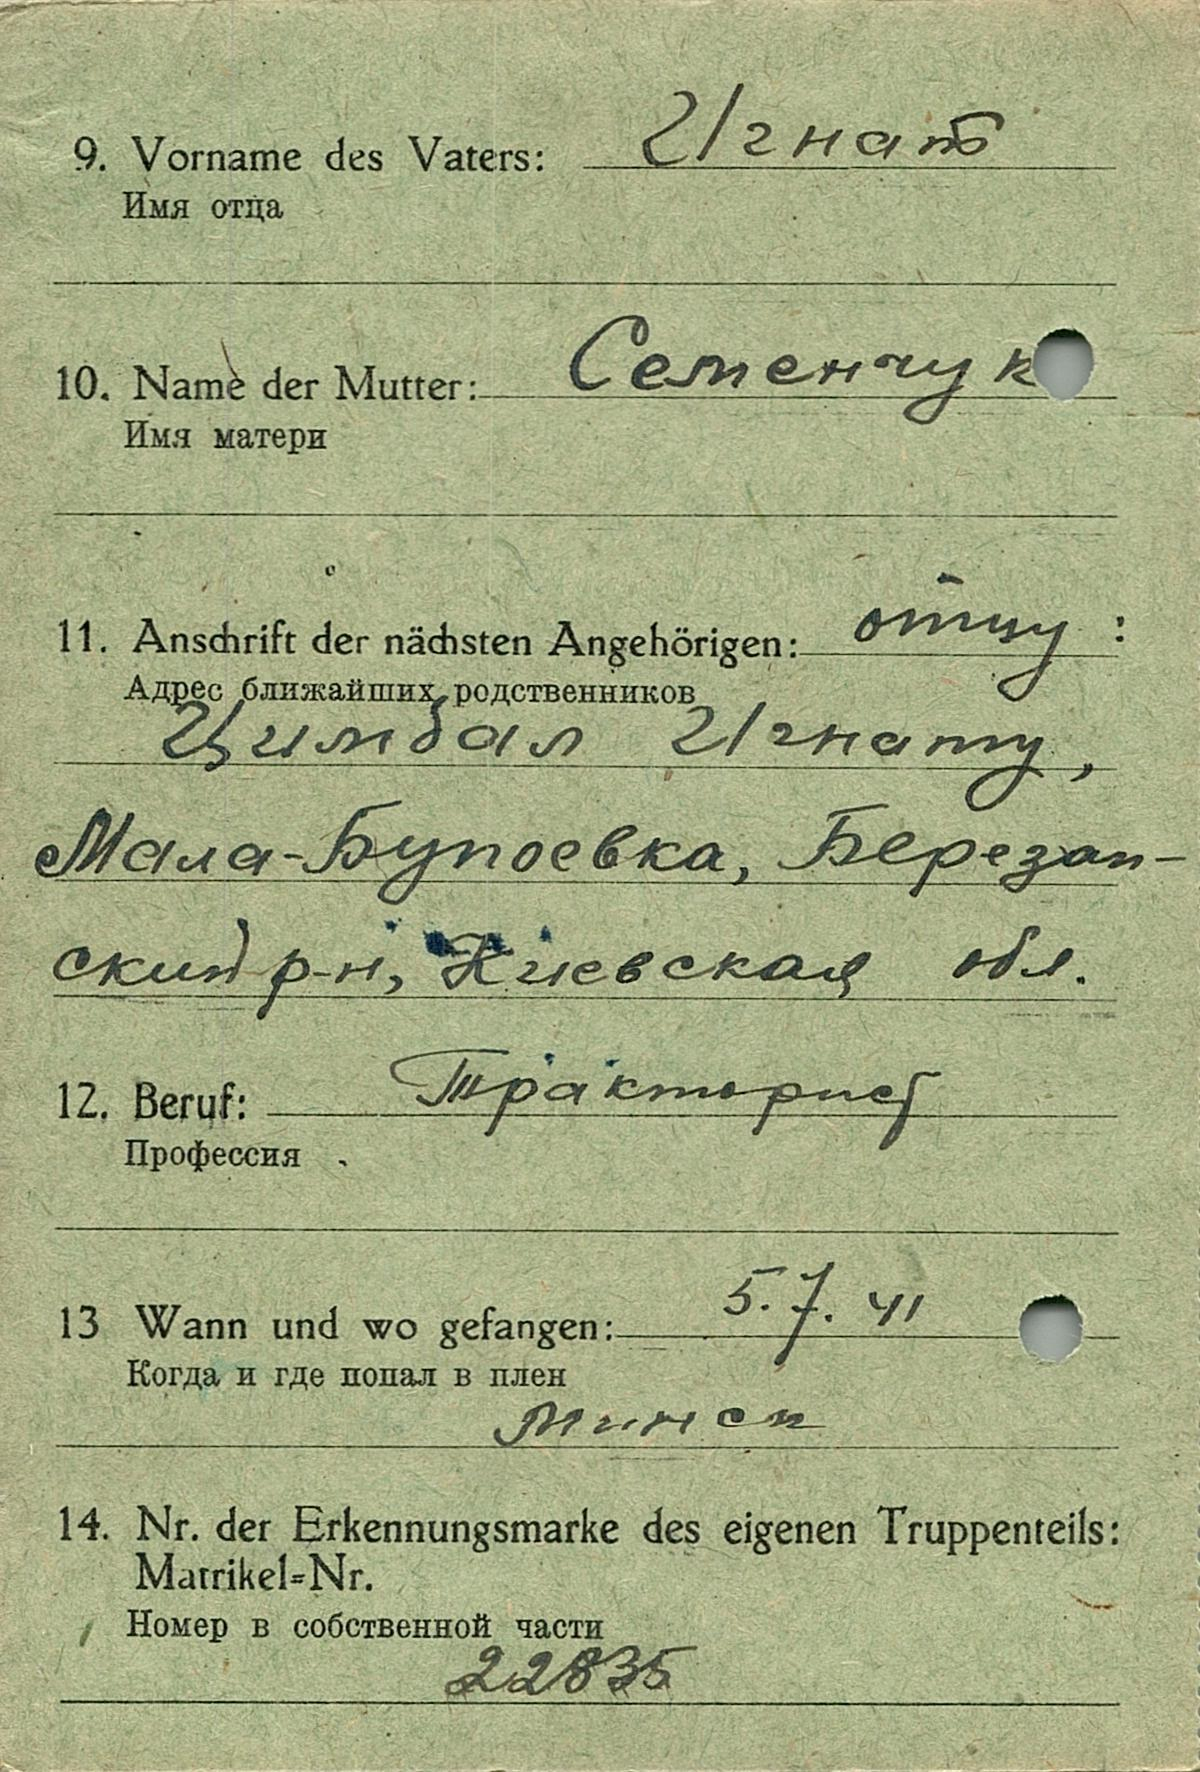 9. Vorname des Vaters: Игнат
Имя отца
10. Name der Mutter: Семенчук
Имя матери
11. Anschrift der nächsten Angehörigen: отцу :
Адрес ближайших родственников
Цимбал Игнату,
Мала-Бупоевка, Березан-
ский р-н, Киевская обл.
12. Beruf: Тракторист
Профессия
13 Wann und wo gefangen: 5.7.41
Когда и где попал в плен
Минск
14. Nr. der Erkennungsmarke des eigenen Truppenteils:
Matrikel=Nr.
Номер в собственной части
22835